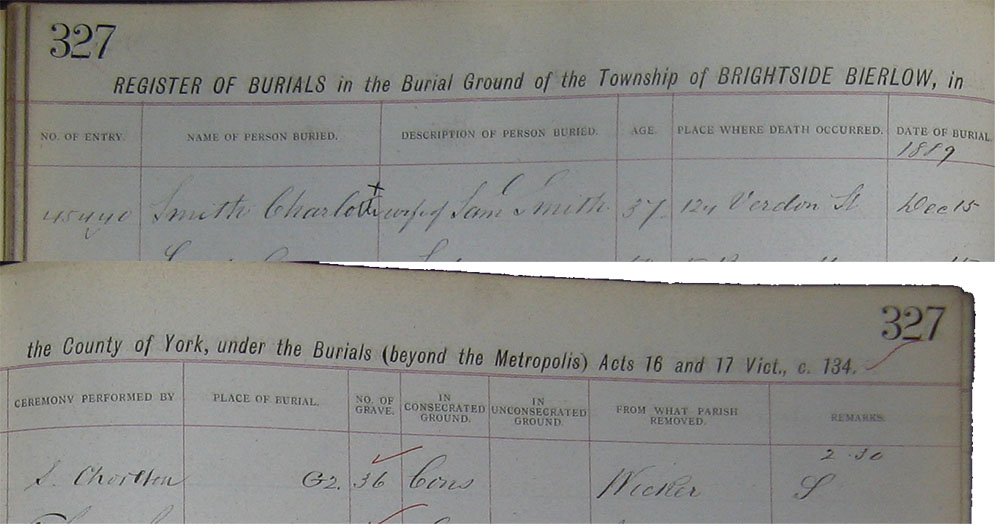 327
REGISTER OF BURIALS in the Burial Ground of the Township of BRIGHTSIDE BIERLOW, in
NO. OF ENTRY. NAME OF PERSON BURIED. DESCRIPTION OF PERSON BURIED. AGE. PLACE WHERE DEATH OCCURRED. DATE OF BURIAL
1889
Smith Charlotte wife of Saml Smith 37 124 Verdon St Dec 15
327
the County of York, under the Burials (beyond the Metropolis) Acts 16 and 17 Vict., c. 134.
CEREMONY PERFORMED BY PLACE OF BURIAL. NO. OF GRAVE. IN CONSECRATED GROUND. IN UNCONSECRATED GROUND. FROM WHAT PARISH REMOVED. REMARKS.
2.30
S. Chorlton G2. 36 Cons Wicker S